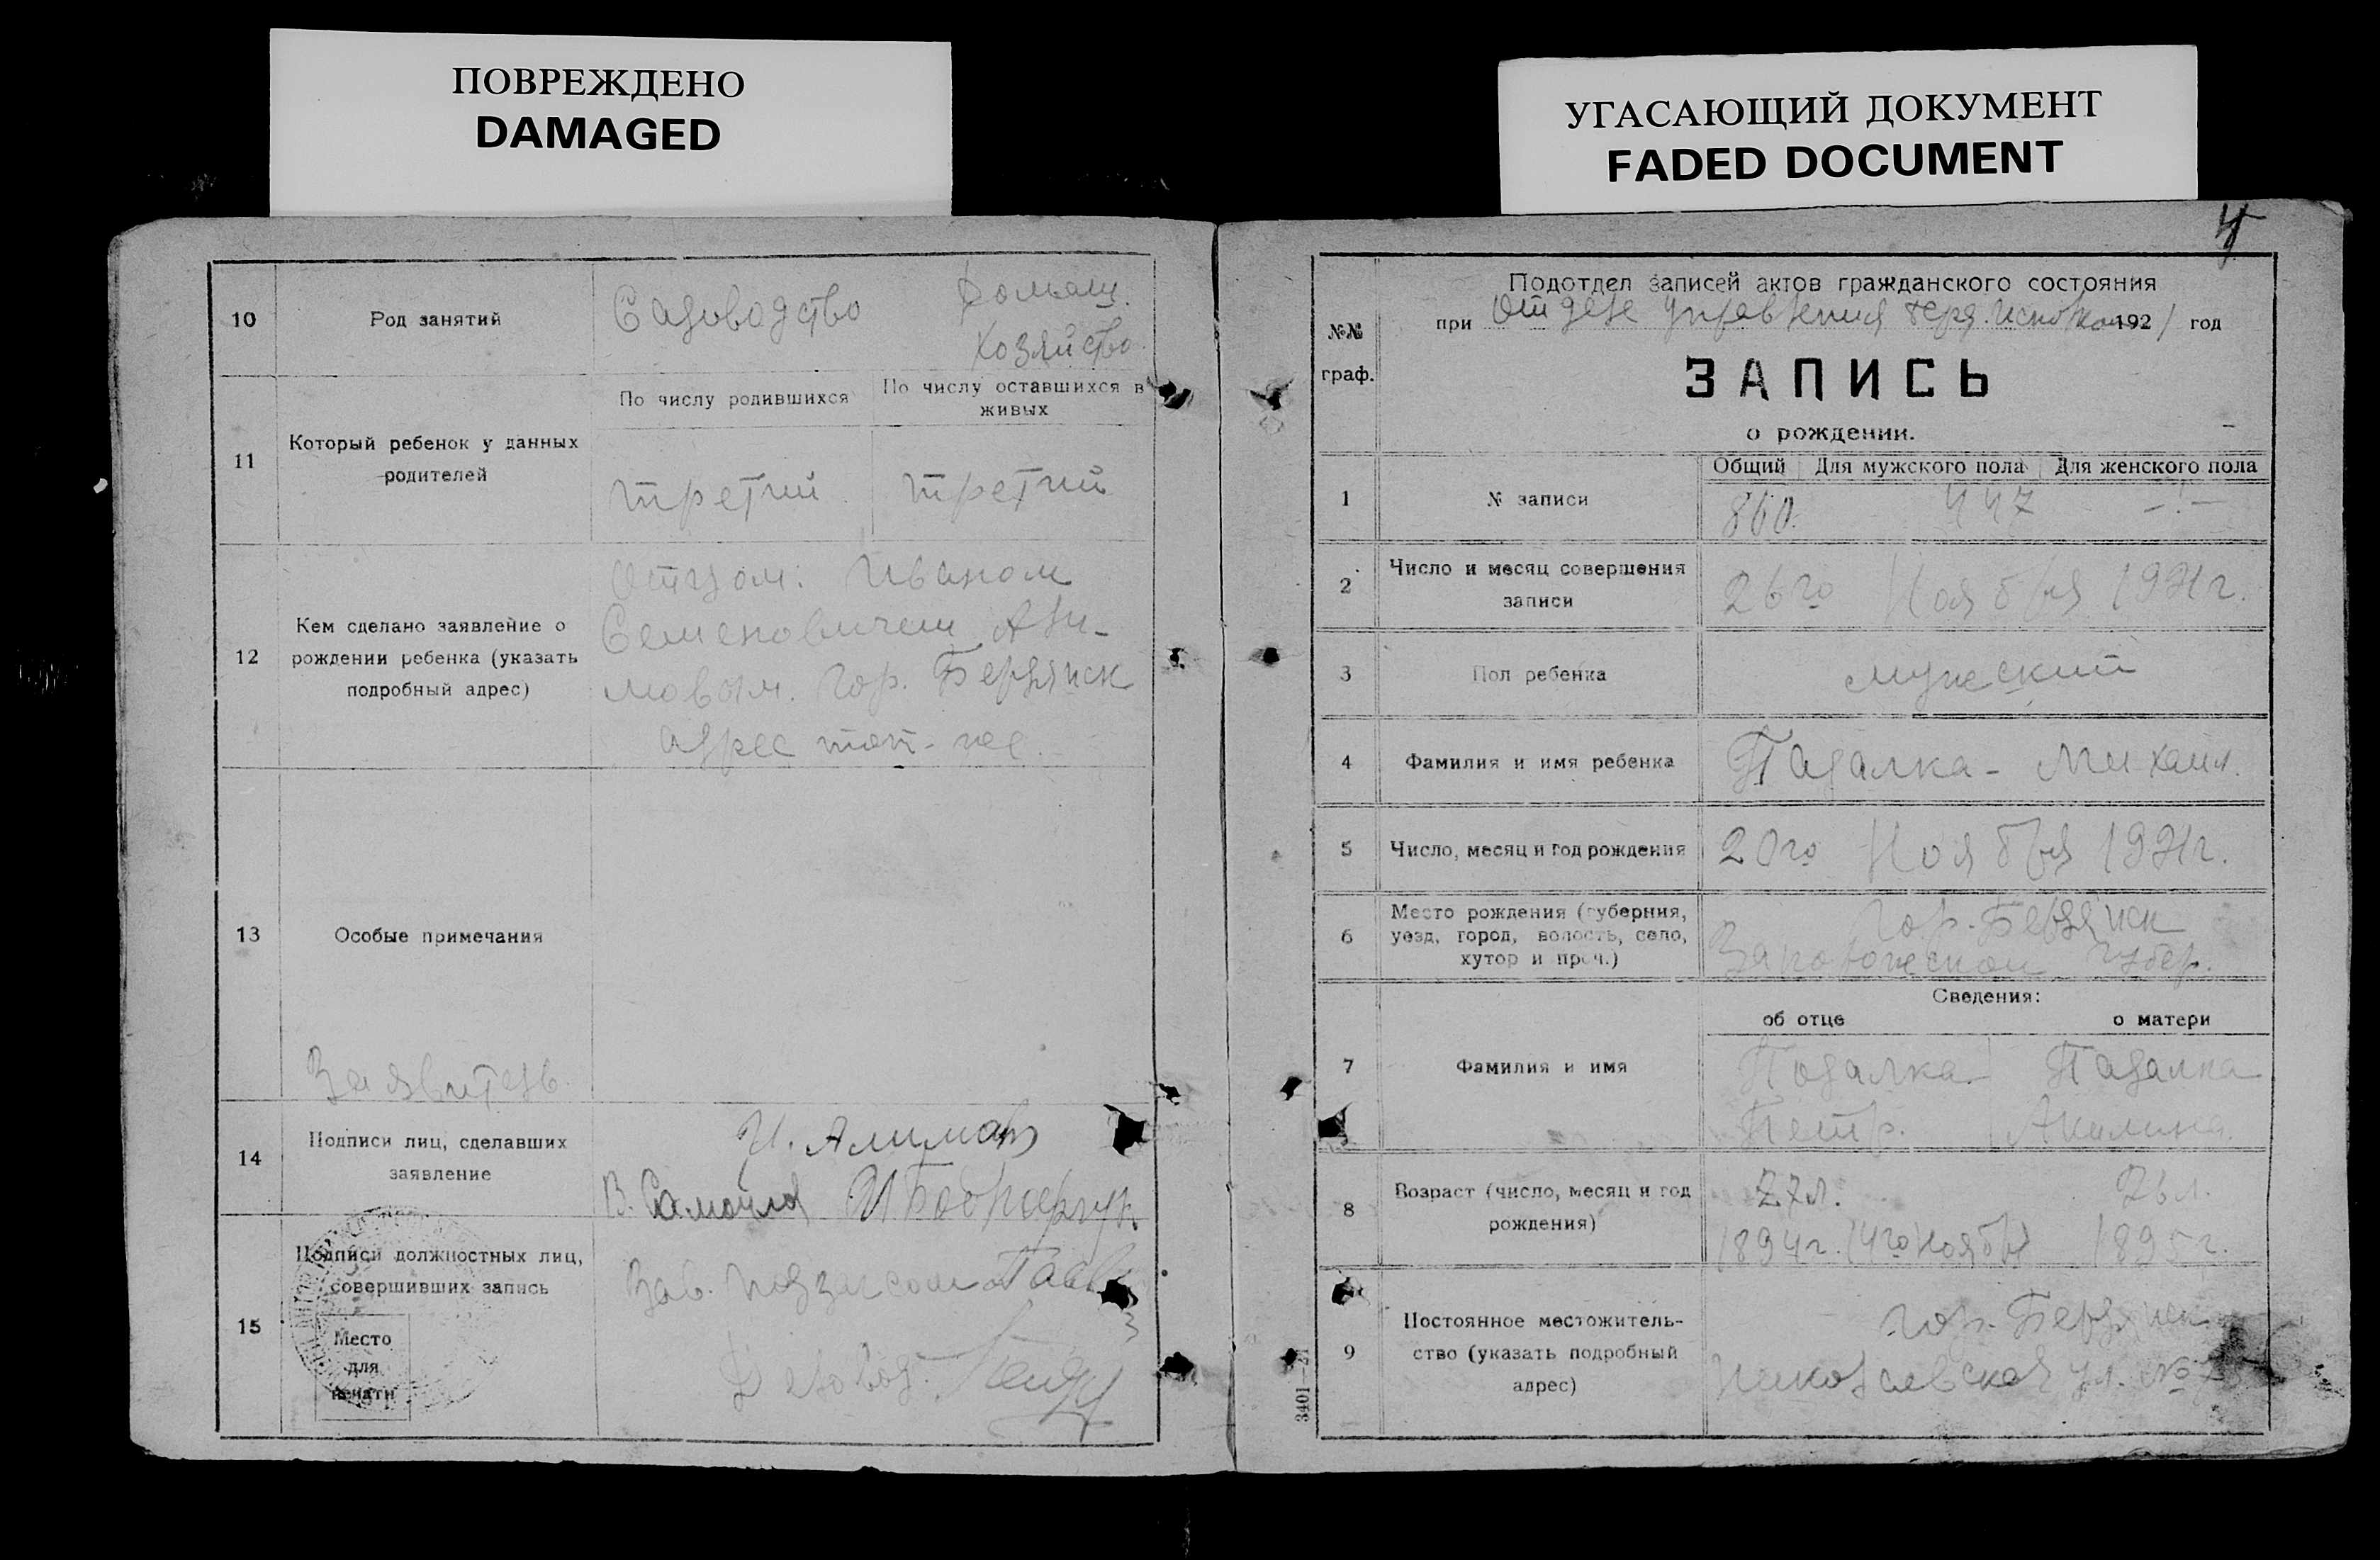 ПОВРЕЖДЕНО
DAMAGED
УГАСАЮЩИЙ ДОКУМЕНТ
FADED DOCUMENT
10
Род занятий
Садоводство
Домаш.
Хозяйство
11
Который ребенок у данных
родителей
По числу родившихся
По числу оставшихся в
живых
третий
третий
12
Кем сделано заявление о
рождении ребенка (указать
подробный адрес)
Отцом: Иваном
Семеновичем Али-
мовым. Гор. Бердянск
адрес тот-же.
13
Особые примечания
Заявитель
14
Подписи лиц, сделавших
заявление
И. Алимов
В. Самойлов
15
Подписи должностных лиц,
совершивших запись
Место
для
печати
Зав. подзагсом
Деловод.
4
№№
граф.
Подотдел записей актов гражданского состояния
при Отделе Управления Берд. Исполкома 1921 год
ЗАПИСЬ
о рождении.
1
№ записи
Общий
Для мужского пола
Для женского пола
860.
447
2
Число и месяц совершения
записи
26го Ноября 1921г.
3
Пол ребенка
мужеский
4
Фамилия и имя ребенка
Падалка - Михаил.
5
Число, месяц и год рождения
20го Ноября 1921г.
6
Место рождения (губерния,
уезд, город, волость, село,
хутор и проч.)
Гор. Бердянск
Запорожской губер.
Сведения:
об отце
о матери
7
Фамилия и имя
Подалка
Петр.
Падалка
Акилина.
8
Возраст (число, месяц и год
рождения)
27л.
1894г. 14го ноября
26л.
1895г.
9
Постоянное местожитель-
ство (указать подробный
адрес)
гор. Бердянск
Николаевская ул. №
3401—21